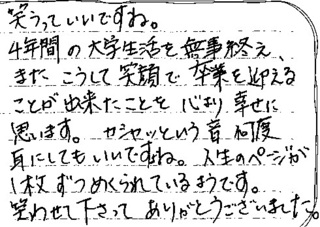 笑うっていいですね。
4年間の大学生活を無事終え、
またこうして笑顔で卒業を迎える
ことが出来たことを心より幸せに
思います。カシャッという音何度
耳にしてもいいですね。人生のページが
1枚ずつめくられているようです。
笑わせて下さってありがとうございました。